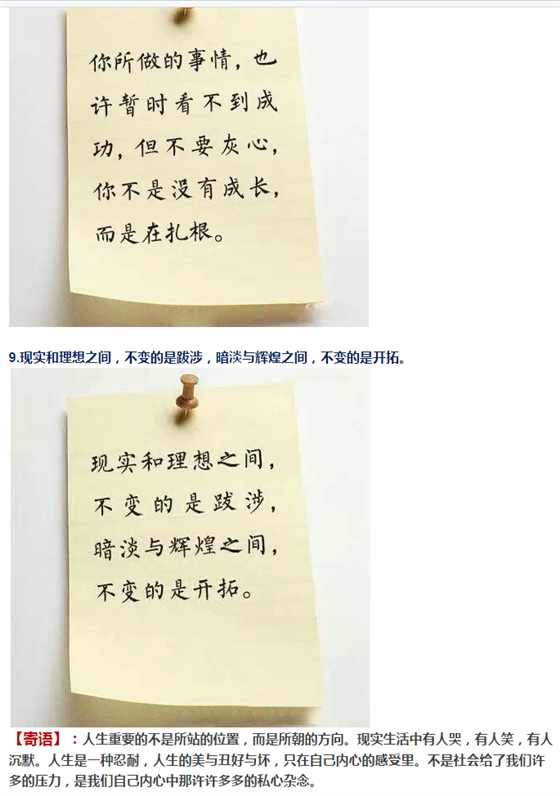 你所做的事情，也
许暂时看不到成
功，但不要灰心，
你不是没有成长，
而是在扎根。
9.现实和理想之间，不变的是跋涉，暗淡与辉煌之间，不变的是开拓。
现实和理想之间，
不变的是跋涉，
暗淡与辉煌之间，
不变的是开拓。
【寄语】：人生重要的不是所站的位置，而是所朝的方向。现实生活中有人哭，有人笑，有人
沉默。人生是一种忍耐，人生的美与丑好与坏，只在自己内心的感受里。不是社会给了我们许
多的压力，是我们自己内心中那许许多多的私心杂念。